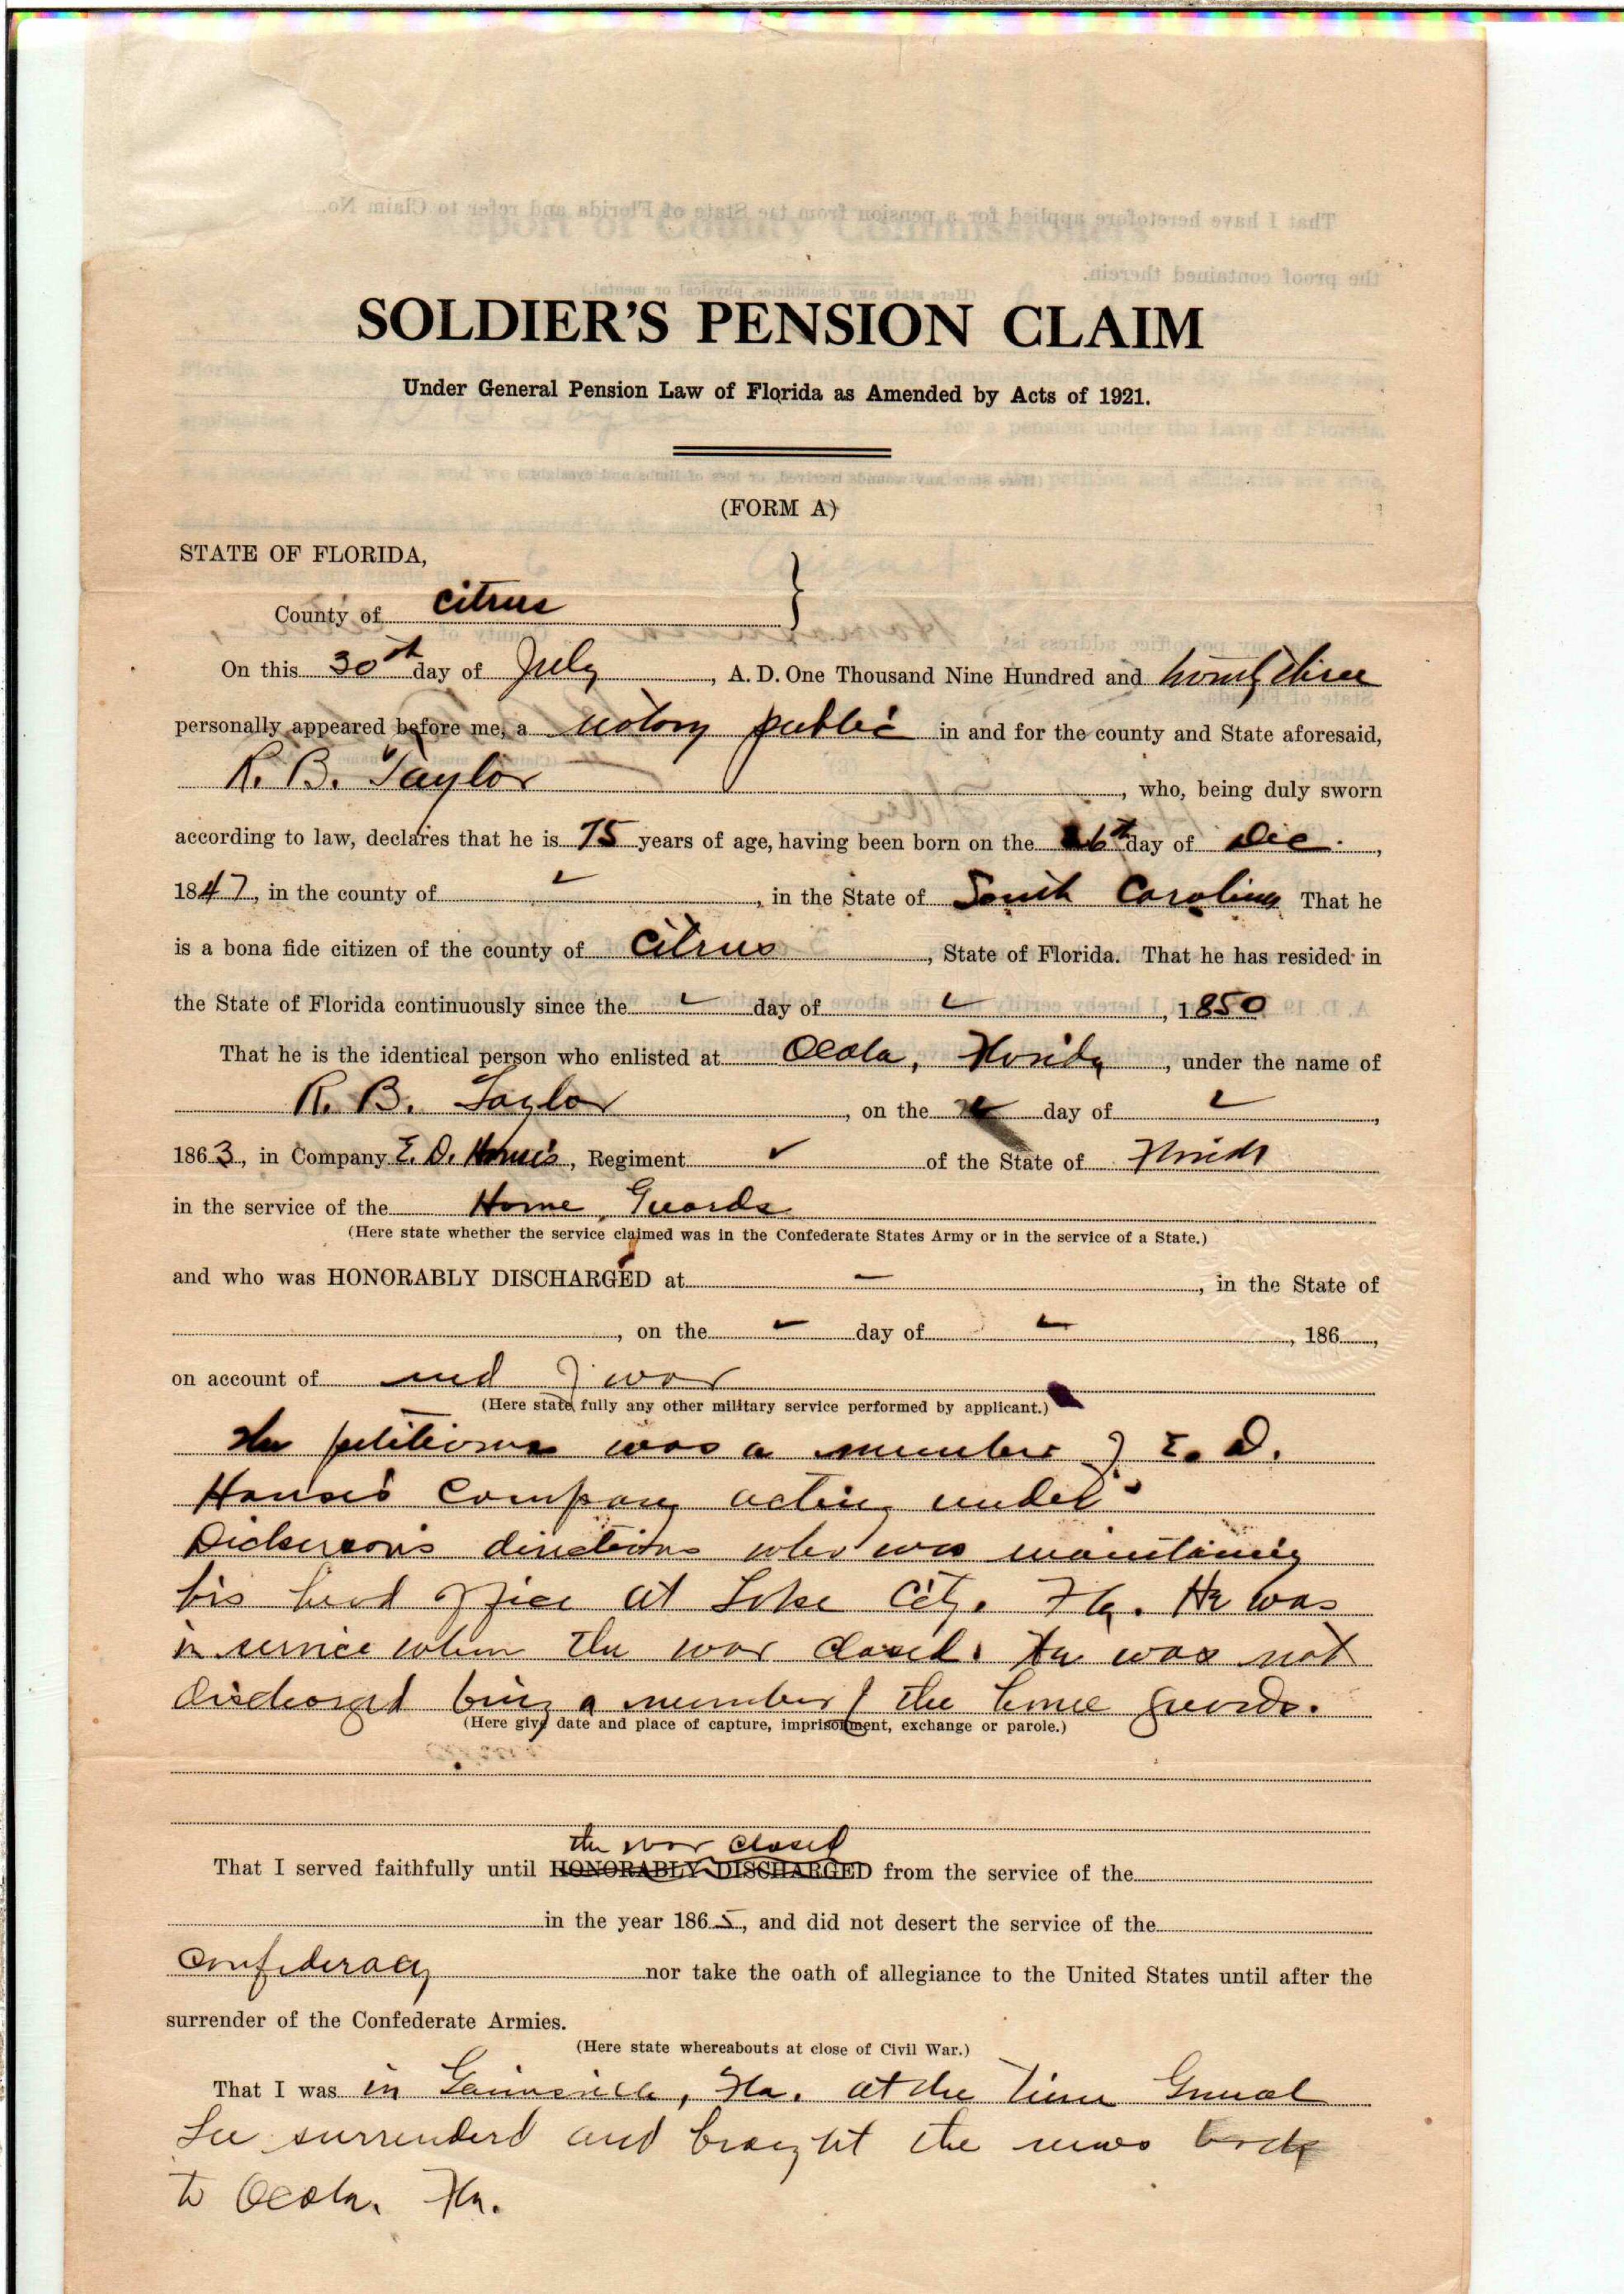 SOLDIER'S PENSION CLAIM
Under General Pension Law of Florida as Amended by Acts of 1921.
(FORM A)
STATE OF FLORIDA,
County of Citrus
On this 30th day of July, A. D. One Thousand Nine Hundred and twenty three
personally appeared before me, a notary public in and for the county and State aforesaid,
R. B. Taylor, who, being duly sworn
according to law, declares that he is 75 years of age, having been born on the 26th day of Dec.,
1847, in the county of, in the State of South Carolina That he
is a bona fide citizen of the county of Citrus, State of Florida. That he has resided in
the State of Florida continuously since the day of, 1850
That he is the identical person who enlisted at Ocala, Florida, under the name of
R. B. Taylor, on the day of,
1863, in Company E. D. Howse's, Regiment of the State of Florida
in the service of the Home Guards
(Here state whether the service claimed was in the Confederate States Army or in the service of a State.)
and who was HONORABLY DISCHARGED at, in the State of
, on the day of, 186,
on account of end of war
(Here state fully any other military service performed by applicant.)
The petitioner was a member of E. D.
Howse's Company acting under
Dickerson's directions who was maintaining
his head office at Lake City. Fla. He was
in service when the war closed. He was not
discharged being a member of the home guards.
(Here give date and place of capture, imprisonment, exchange or parole.)
the war closed
That I served faithfully until HONORABLY DISCHARGED from the service of the
in the year 1865, and did not desert the service of the
Confederacy nor take the oath of allegiance to the United States until after the
surrender of the Confederate Armies.
(Here state whereabouts at close of Civil War.)
That I was in Gainesville, Fla. at the time General
Lee surrenderd and brought the news back
to Ocala. Fla.